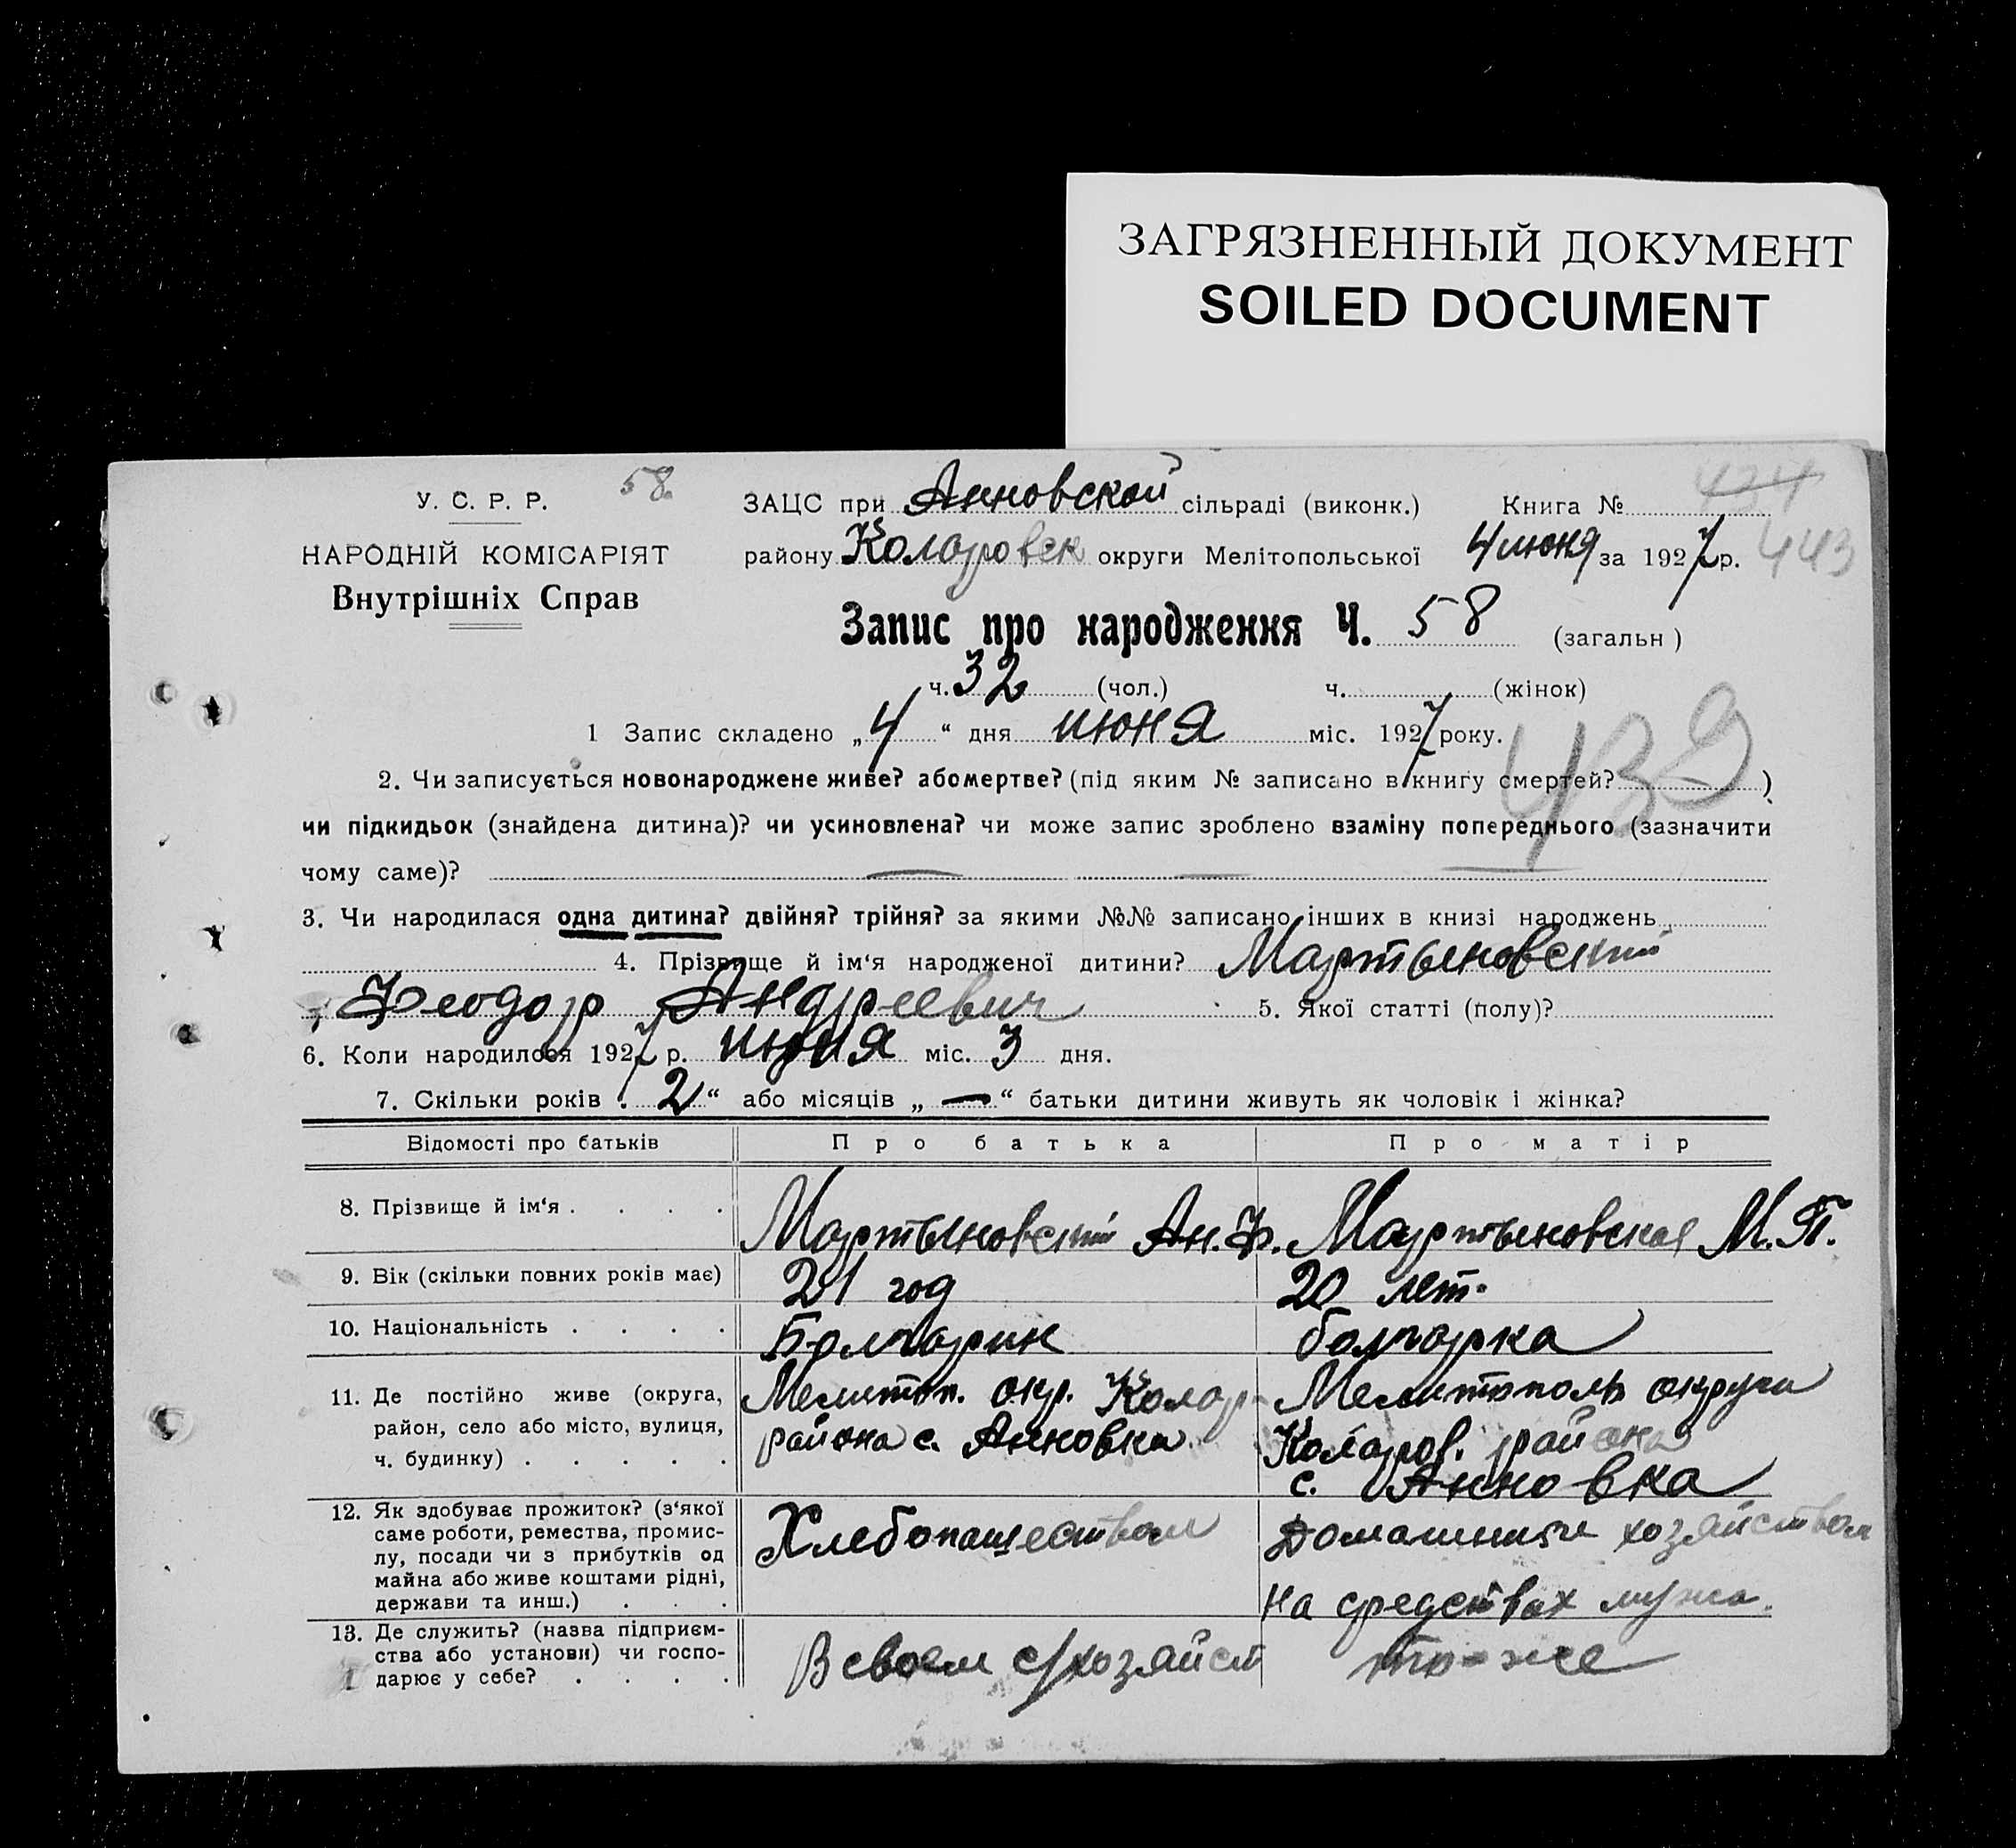 ЗАГРЯЗНЕННЫЙ ДОКУМЕНТ
SOILED DOCUMENT
У. С. Р. Р. 58.
НАРОДНІЙ КОМІСАРІЯТ
Внутрішніх Справ
ЗАЦС при Анновской сільраді (виконк.) Книга № 434
району Коларовск округи Мелітопольської 4 июня за 1927 р. 443
Запис про народження Ч. 58 (загальн )
ч. 32 (чол.) ч. (жінок)
1 Запис складено „4“ дня июня міс. 1927 року.
439
2. Чи записується новонароджене живе? або мертве? (під яким № записано в книгу смертей? )
чи підкидьок (знайдена дитина)? чи усиновлена? чи може запис зроблено взаміну попереднього (зазначити
чому саме)? —
3. Чи народилася одна дитина? двійня? трійня? за якими №№ записано інших в книзі народжень
4. Прізвище й ім‘я народженої дитини? Мартыновский
Феодор Андреевич 5. Якої статті (полу)?
6. Коли народилося 1927 р. июня міс. 3 дня.
7. Скільки років 2“ або місяців „—“ батьки дитини живуть як чоловік і жінка?
Відомості про батьків Про батька Про матір
8. Прізвище й ім‘я . . . . Мартыновский Ан. Ф. Мартыновская М. П.
9. Вік (скільки повних років має) 21 год 20 лет.
10. Національність . . . . Болгарин болгарка
11. Де постійно живе (округа, район, село або місто, вулиця, ч. будинку) . . . . .
Мелитоп. окр. Колар-
района с. Анновка
Мелитополь округи
Коларов. района
с. Анновка
12. Як здобуває прожиток? (з‘якої саме роботи, ремества, промис-
лу, посади чи з прибутків од
майна або живе коштами рідні,
держави та инш.) . . .
Хлебопашеством
Домашним хозяйством
на средствах мужа.
13. Де служить? (назва підприєм-
ства або установи) чи госпо-
дарює у себе? . . . .
В своем с/хозяйст
то-же